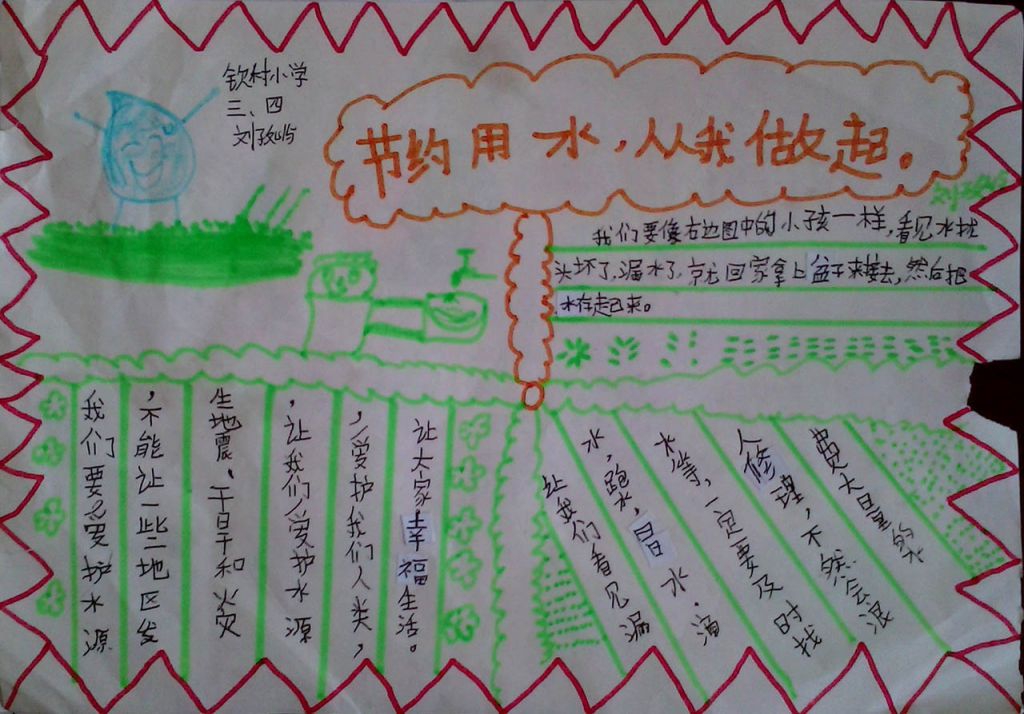 钦村小学
三、四
节约用水，从我做起。
我们要像右边图中的小孩一样，看见水拢
头坏了，漏水了，就回家拿上盆子来接去，然后把
水存起已来。
我们要爱护水源
，不能让一些地区发
生地震、干旱和火灾
，让我们爱护水源
，爱护我们人类，
让大家幸福生活。
让我们看见漏
水，跑水，冒水，滴
水等，一定要及时找
人修理，不然会浪
费大量的水